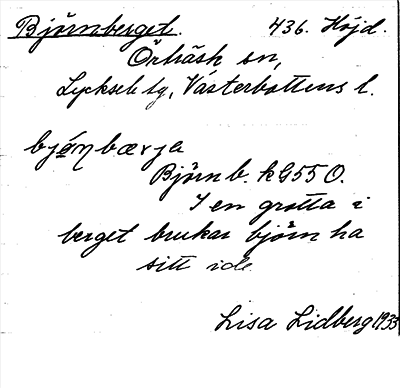 Björnberget. 436. Höjd.
Örträsk sn,
Lycksele lg, Västerbottens l.
bjǿṇbærja
Björnb. kG55O.
I en grotta i
berget brukar björn ha
sitt ide
Lisa Lidberg 1933